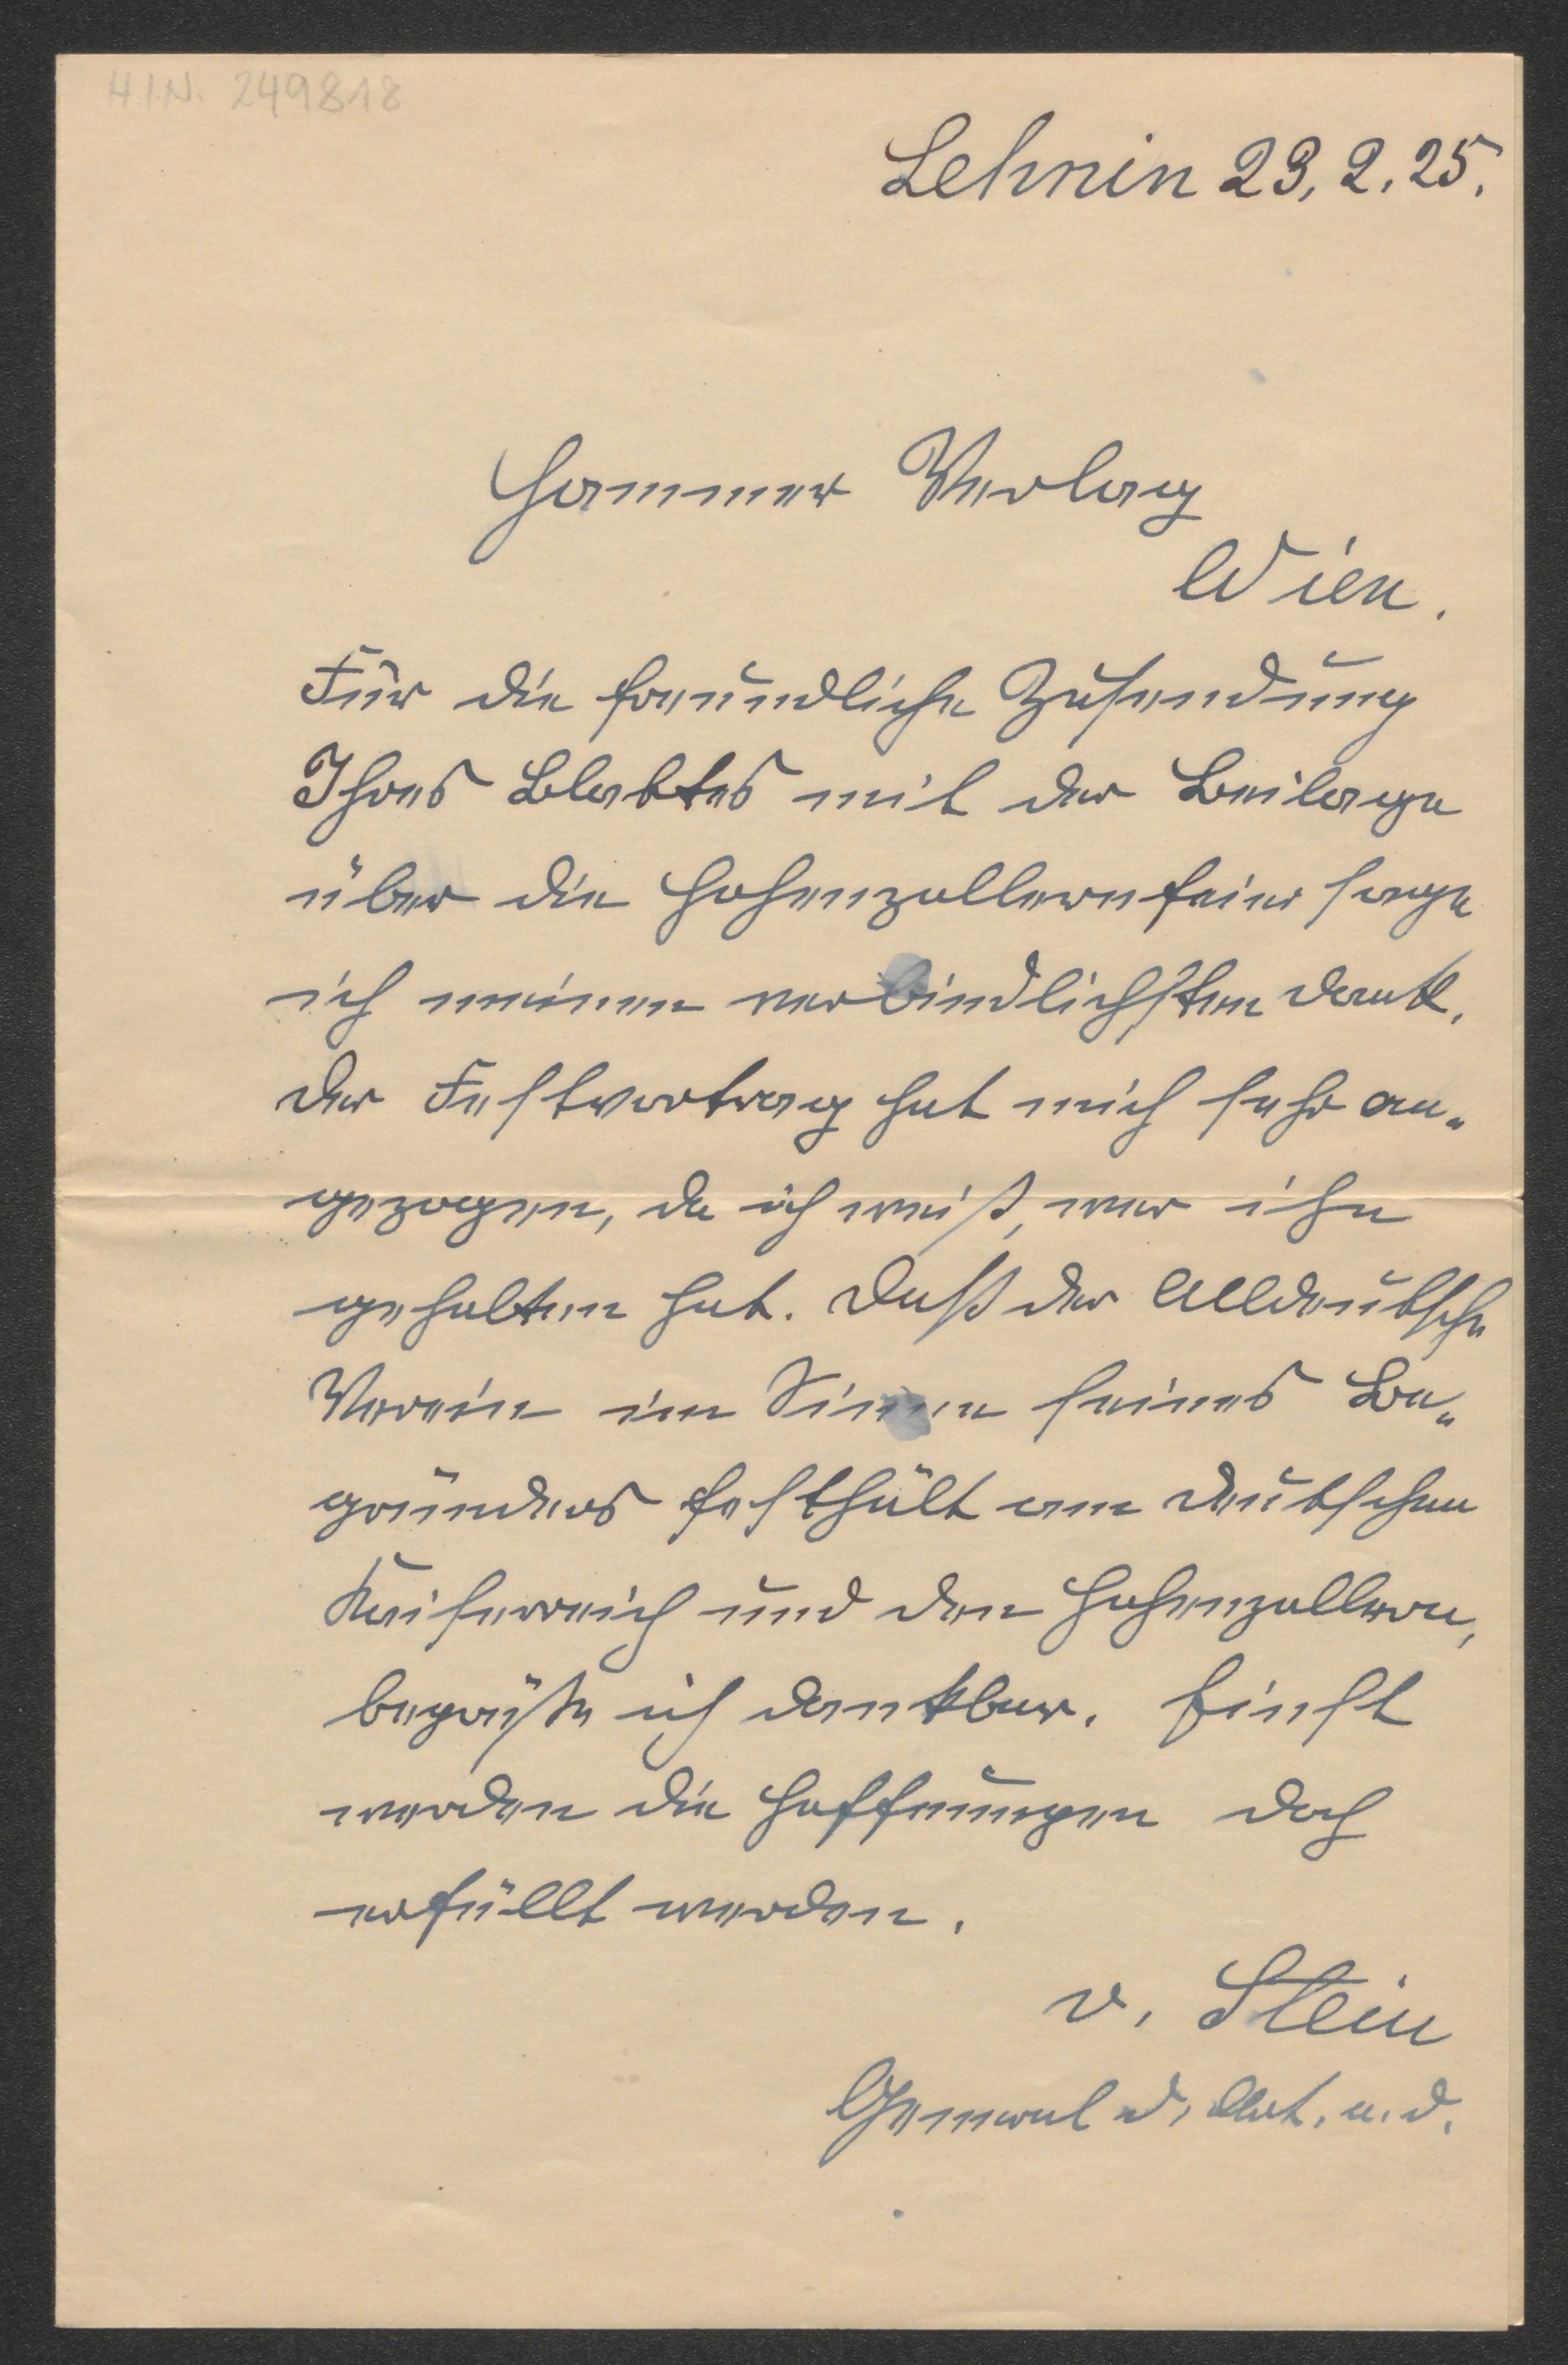 H.I.N. 249818
Lehnin 23, 2. 25.
Hammer Verlag
Wien.
Für die freundliche Zusendung
Ihres Blattes mit der Beilage
über die Hohenzollernfeier sage
ich meinen verbindlichsten Dank.
Der Festvortrag hat mich sehr an„
gezogen, da ich weiß, wer ihn
gehalten hat. Daß der Alldeutsche
Verein im Sinne seines Be„
gründers festhält am deutschen
Kaiserreich und den Hohenzollern,
begrüße ich dankbar. Einst
werden die Hoffnungen doch
erfüllt werden.
v. Stein
General d. Art. a. D.